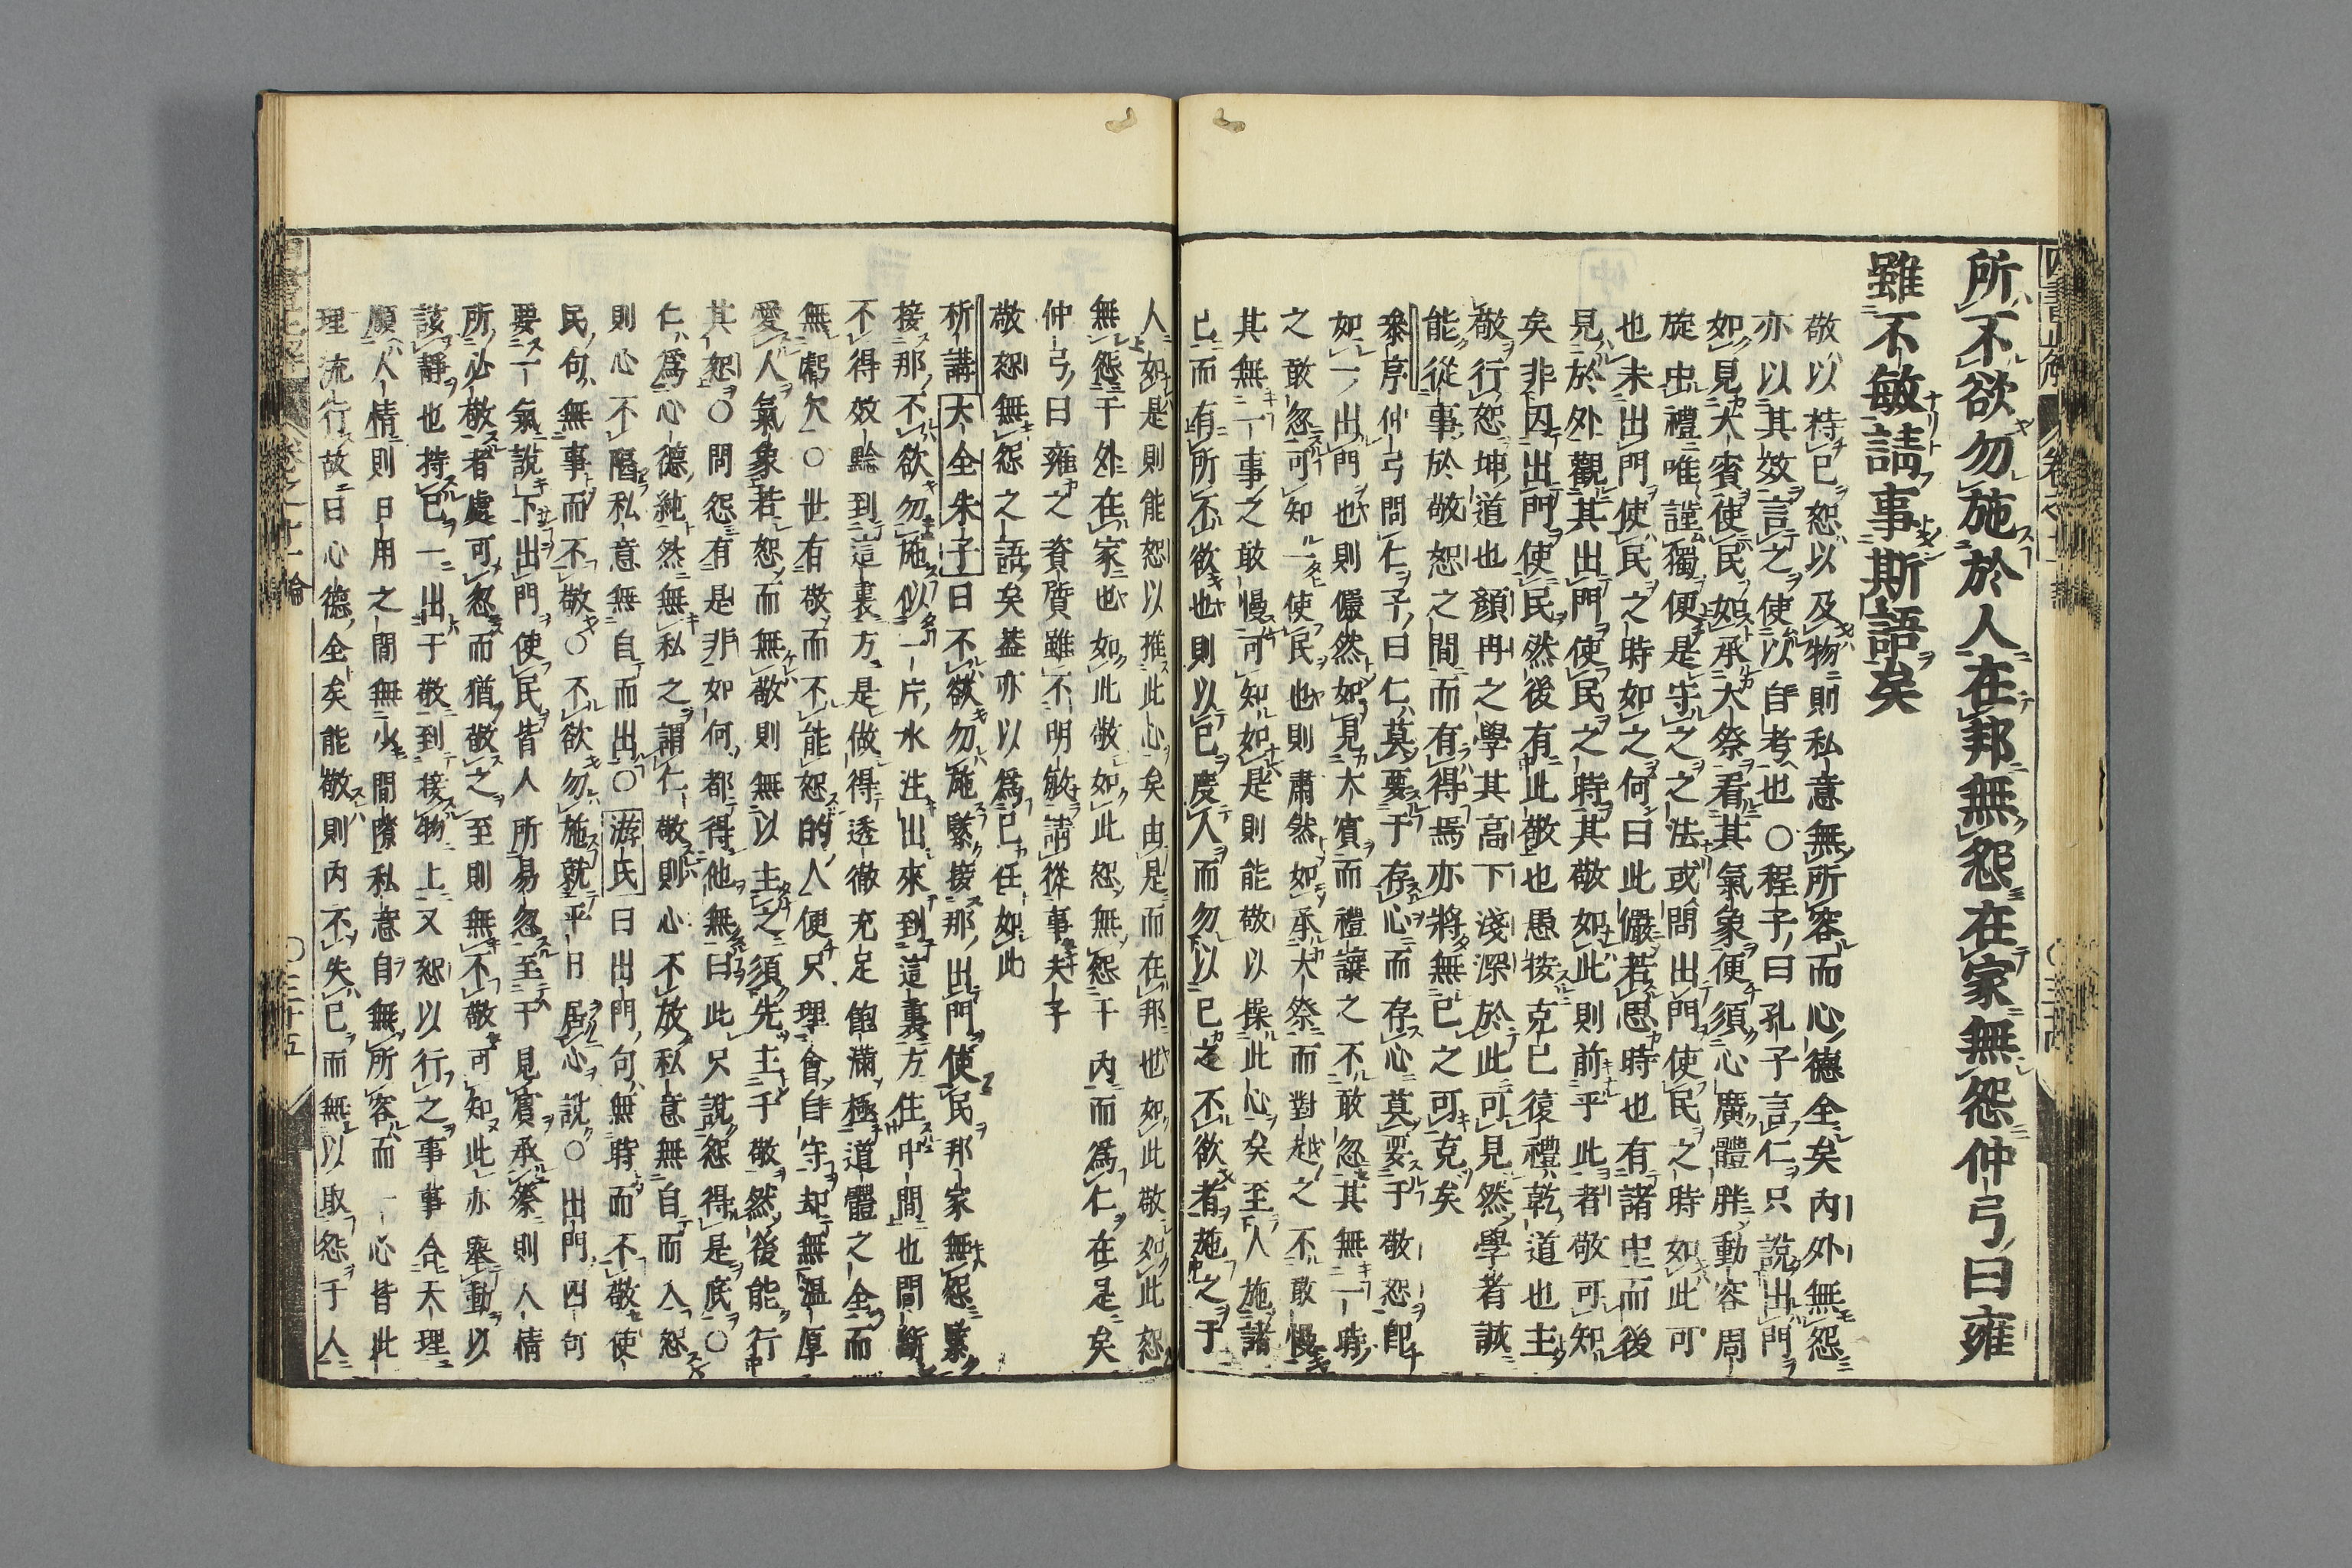 所不欲勿施於人在邦無怨在家無怨仲弓曰雍
雖不敏請事斯語矣
敬以持己恕以及物則私意無所容而心德全矣內外無怨
亦以其效言之使以自考也○程子曰孔子言仁只說出門
如見大賓使民如承大祭看其氣象便須心廣體胖動容周
旋中禮唯謹獨便是守之之法或問出門使民之時如此可
也未出門使民之時如之何曰此儼若思時也有諸中而後
見於外觀其出門使民之時其敬如此則前乎此者敬可知
矣非因出門使民然後有此敬也愚按克己復禮乾道也主
敬行恕坤道也顏冉之學其高下淺深於此可見然學者誠
能從事於敬恕之間而有得焉亦將無己之可克矣
參序仲弓問仁子曰仁莫要于存心而存心莫要于敬恕卽
如一出門也則儼然如見大賓而禮讓之不敢忽其無一時
之敢忽可知一使民也則肅然如承大祭而對越之不敢慢
其無一事之敢慢可知如是則能敬以操此心矣至人施諸
已而有所不欲也則以己度人而勿以己之不欲者施之于
人如是則能恕以推此心矣由是而在邦也如此敬如此恕
無怨于外在家也如此敬如此恕無怨于內而爲仁在是矣
仲弓曰雍之資質雖不明敏請從事夫子
敬恕無怨之語矣蓋亦以爲己任如此
析講大全朱子曰不欲勿施緊接那出門使民那家無怨緊
接那不欲勿施似一片水注出來到這裏方住中間也間斷
不得效驗到這裏方是做得透徹充足飽滿極道體之全而
無虧欠○世有敬而不能恕的人便只理會自守却無溫厚
愛人氣象若恕而無敬則無以主之須先主于敬然後能行
其恕○問怨有是非如何都得他無曰此只說怨得是底○
仁爲心德純然無私之謂仁敬則心不放私意無自而入恕
則心不隘私意無自而出○游氏曰出門句無時而不敬使
民句無事而不敬○不欲勿施就平日居心說○出門四句
要一氣說下出門使民皆人所易忽至于見賓承祭則人情
所必敬者處可忽而猶敬之至則無不敬可知此亦舉動以
該靜也持己一出于敬到接物上又恕以行之事事合天理
順人情則日用之間無少間隙私意自無所容而一心皆此
理流行故曰心德全矣能敬則內不失己而無以取怨于人